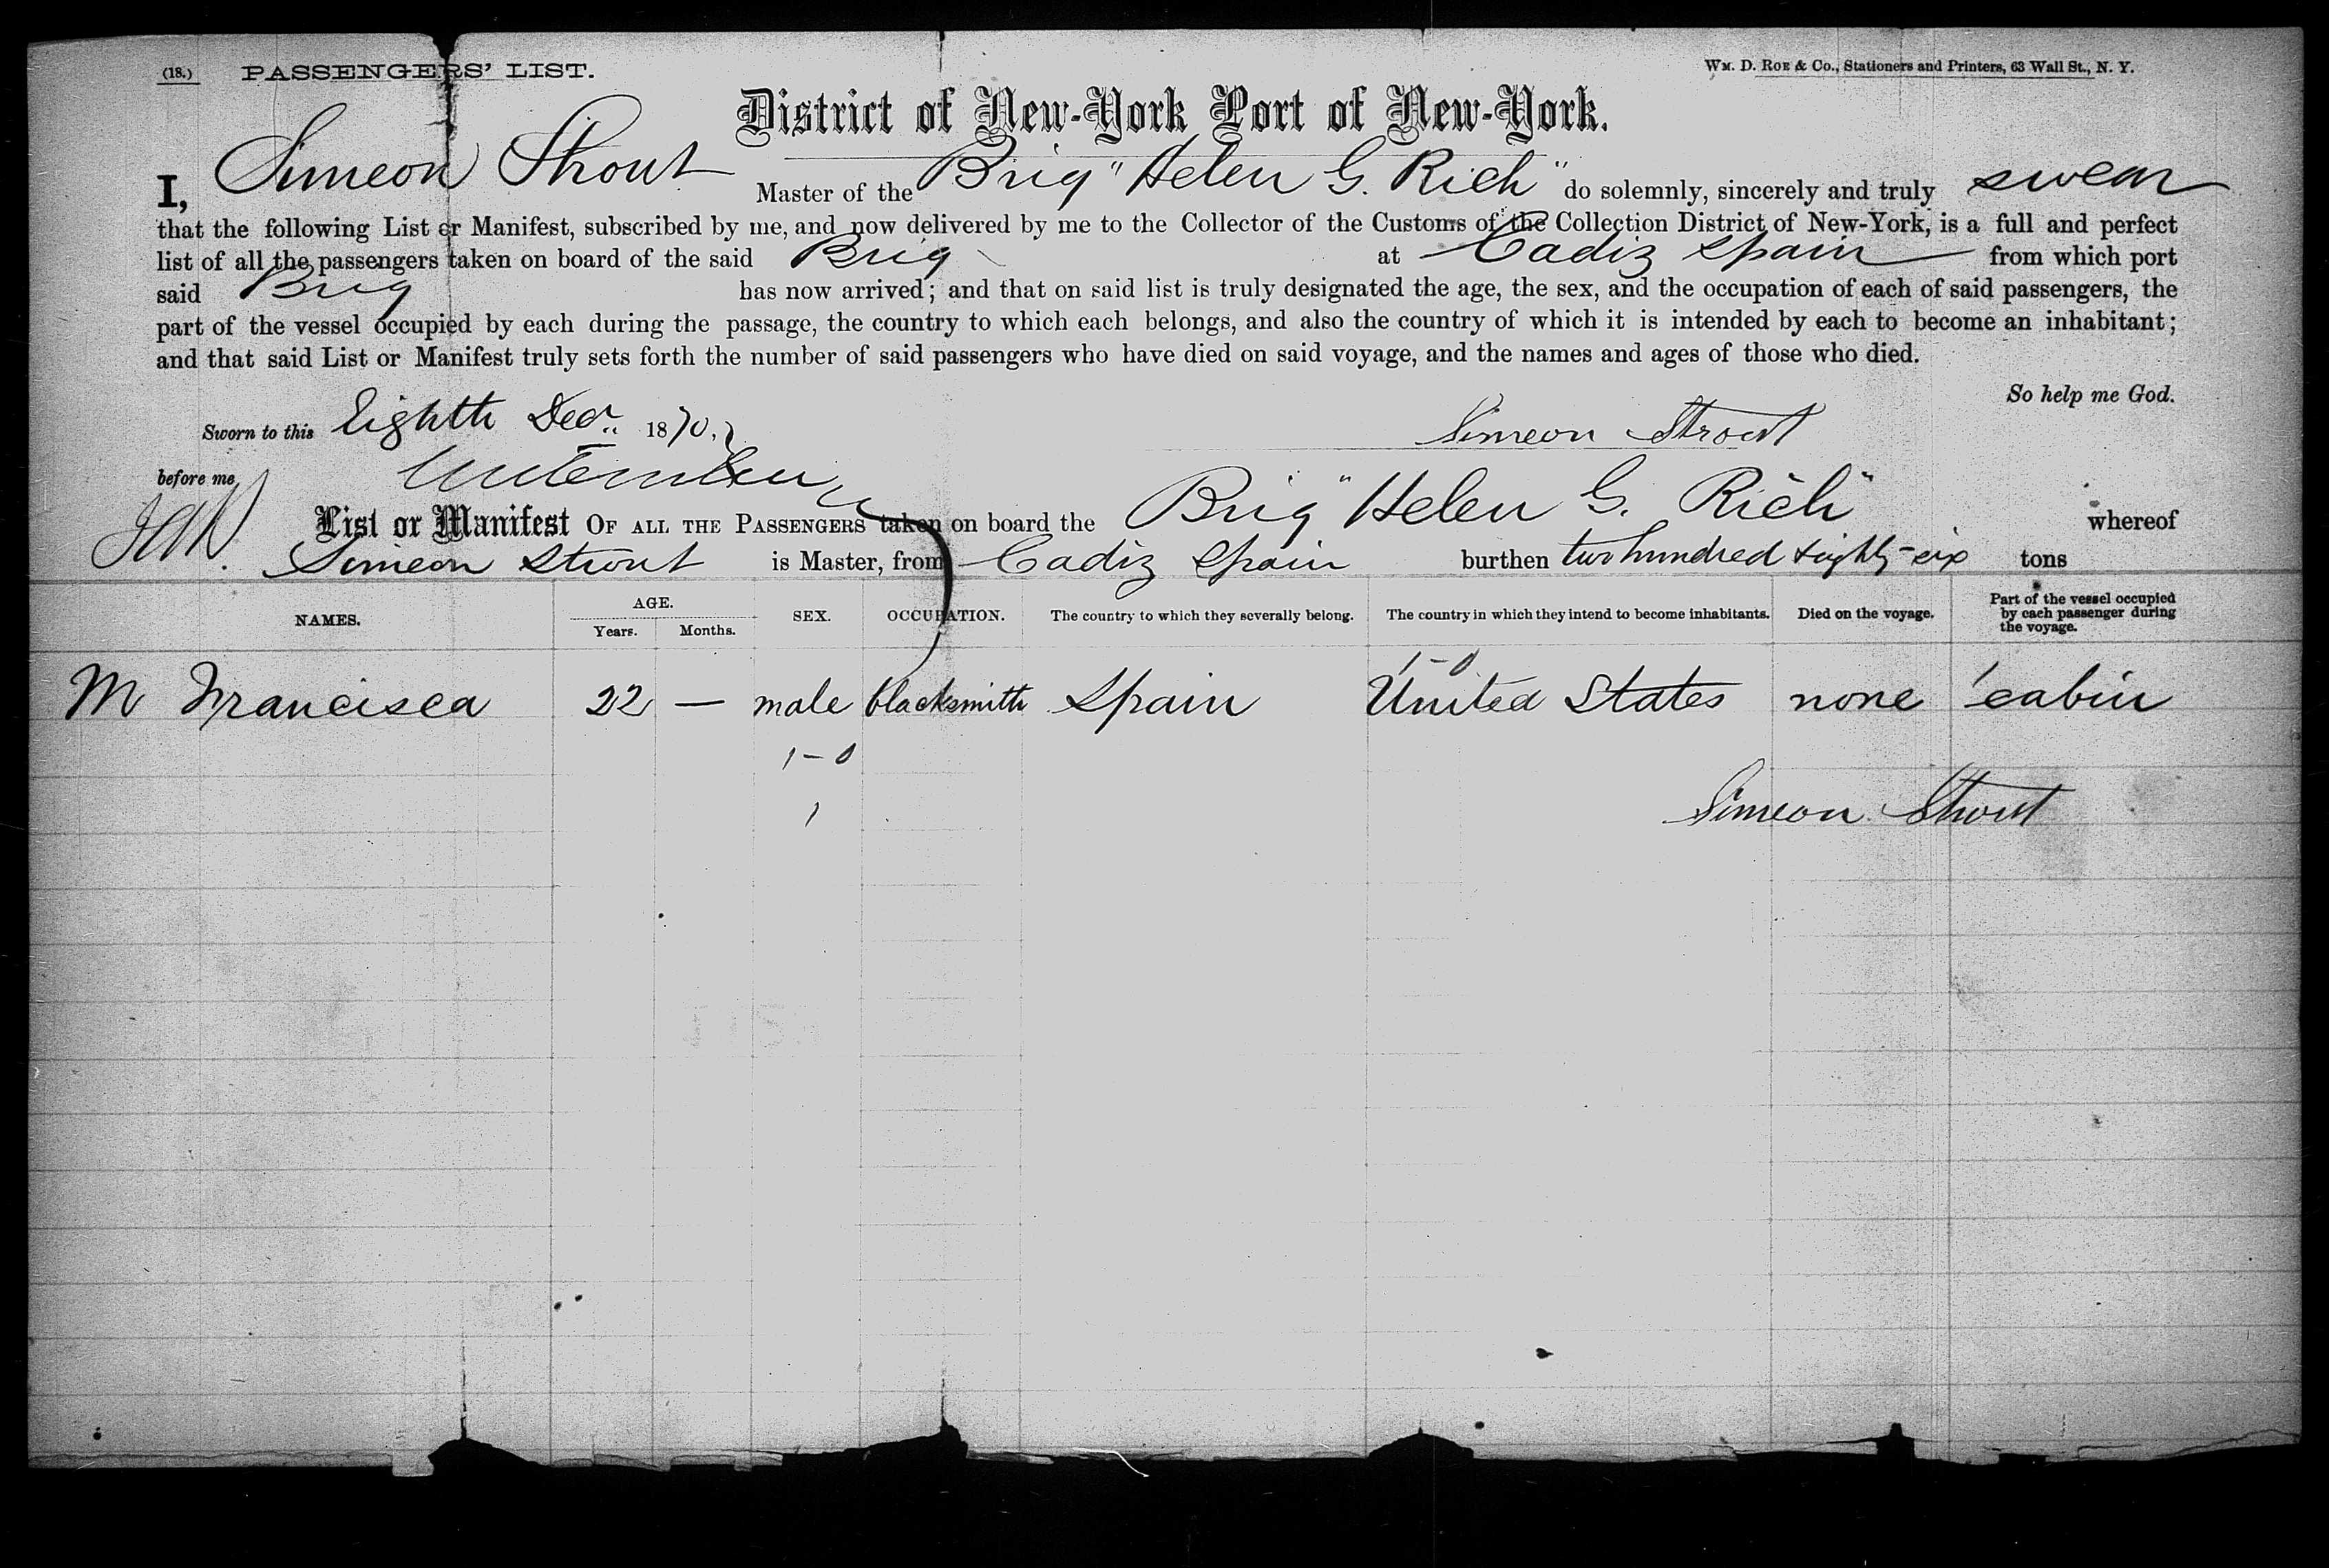 (18.) PASSENGERS' LIST. Wm. D. Roe & Co., Stationers and Printers, 63 Wall St., N. Y.
District of New-York Port of New-York.
I, Simeon Strout Master of the Brig "Helen G. Rich" do solemnly, sincerely and truly swear
that the following List or Manifest, subscribed by me, and now delivered by me to the Collector of the Customs of the Collection District of New-York, is a full and perfect
list of all the passengers taken on board of the said Brig at Cadiz Spain from which port
said Brig has now arrived; and that on said list is truly designated the age, the sex, and the occupation of each of said passengers, the
part of the vessel occupied by each during the passage, the country to which each belongs, and also the country of which it is intended by each to become an inhabitant;
and that said List or Manifest truly sets forth the number of said passengers who have died on said voyage, and the names and ages of those who died.
So help me God.
Sworn to this Eighth Decr. 1870. Simeon Strout
before me
List or Manifest OF ALL THE PASSENGERS taken on board the Brig "Helen G. Rich" whereof
Simeon Strout is Master, from Cadiz Spain burthen two hundred & eighty-six tons
NAMES. AGE. Years. Months. SEX. OCCUPATION. The country to which they severally belong. The country in which they intend to become inhabitants. Died on the voyage. Part of the vessel occupied by each passenger during the voyage.
1-0
M Francisca 22 — male blacksmith Spain United States none cabin
1-0
1
Simeon Strout